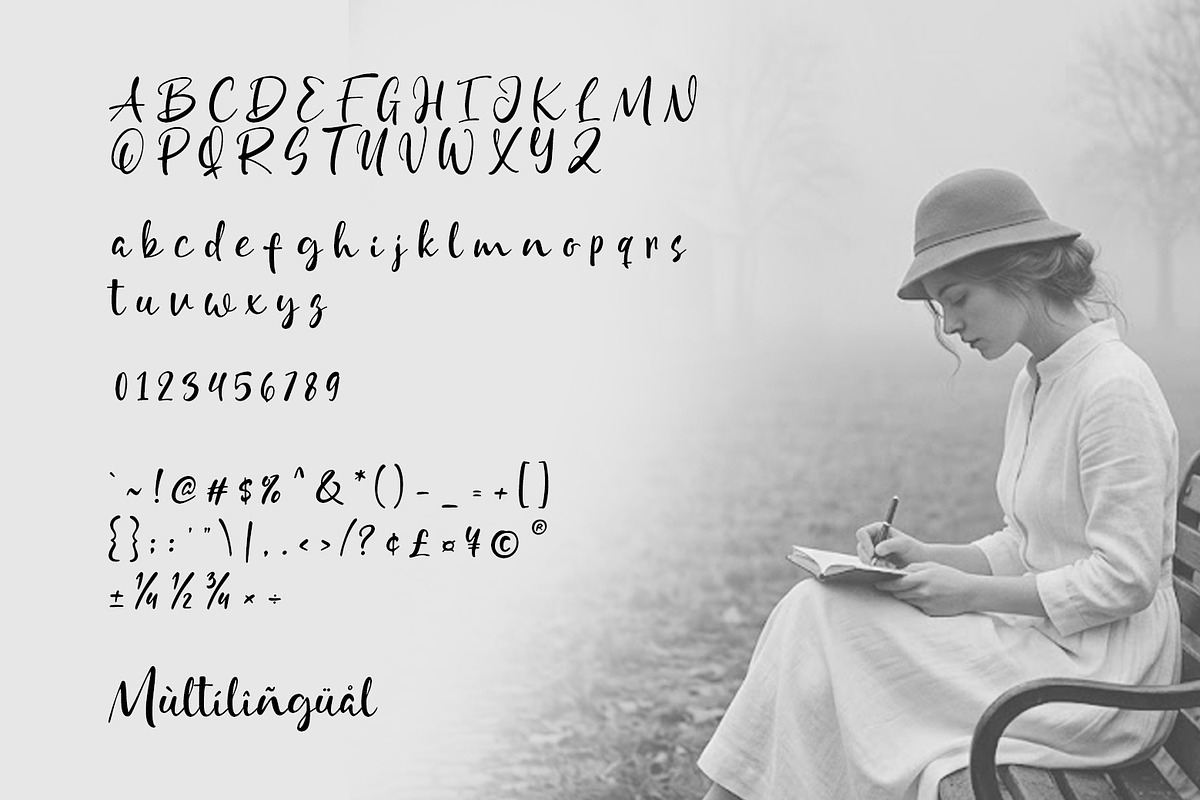 A B C D E F G H I J K L M N
O P Q R S T U V W X Y Z
a b c d e f g h i j k l m n o p q r s
t u v w x y z
0 1 2 3 4 5 6 7 8 9
` ~ ! @ # $ % ^ & * ( ) - _ = + [ ]
{ } ; : ' " \ | , . < > / ? ¢ £ ¤ ¥ © ®
± ¼ ½ ¾ × ÷
Mùltílîñgüål